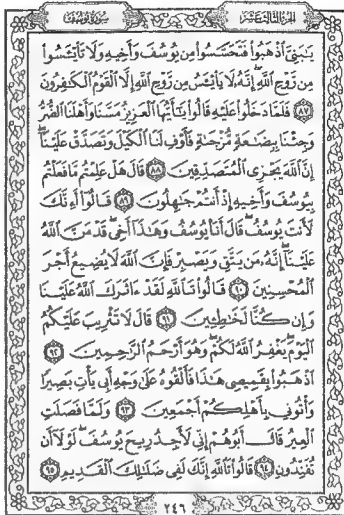 الجزء الثالث عشر
سورة يوسف
يَٰبَنِيَّ ٱذْهَبُوا۟ فَتَحَسَّسُوا۟ مِن يُوسُفَ وَأَخِيهِ وَلَا تَا۟يْـَٔسُوا۟
مِن رَّوْحِ ٱللَّهِ إِنَّهُۥ لَا يَا۟يْـَٔسُ مِن رَّوْحِ ٱللَّهِ إِلَّا ٱلْقَوْمُ ٱلْكَٰفِرُونَ
٨٧ فَلَمَّا دَخَلُوا۟ عَلَيْهِ قَالُوا۟ يَٰٓأَيُّهَا ٱلْعَزِيزُ مَسَّنَا وَأَهْلَنَا ٱلضُّرُّ
وَجِئْنَا بِبِضَٰعَةٍ مُّزْجَىٰةٍ فَأَوْفِ لَنَا ٱلْكَيْلَ وَتَصَدَّقْ عَلَيْنَآ
إِنَّ ٱللَّهَ يَجْزِى ٱلْمُتَصَدِّقِينَ ٨٨ قَالَ هَلْ عَلِمْتُم مَّا فَعَلْتُم
بِيُوسُفَ وَأَخِيهِ إِذْ أَنتُمْ جَٰهِلُونَ ٨٩ قَالُوٓا۟ أَءِنَّكَ
لَأَنتَ يُوسُفُ قَالَ أَنَا۠ يُوسُفُ وَهَٰذَآ أَخِى قَدْ مَنَّ ٱللَّهُ
عَلَيْنَآ إِنَّهُۥ مَن يَتَّقِ وَيَصْبِرْ فَإِنَّ ٱللَّهَ لَا يُضِيعُ أَجْرَ
ٱلْمُحْسِنِينَ ٩٠ قَالُوا۟ تَٱللَّهِ لَقَدْ ءَاثَرَكَ ٱللَّهُ عَلَيْنَا
وَإِن كُنَّا لَخَٰطِـِٔينَ ٩١ قَالَ لَا تَثْرِيبَ عَلَيْكُمُ
ٱلْيَوْمَ يَغْفِرُ ٱللَّهُ لَكُمْ وَهُوَ أَرْحَمُ ٱلرَّٰحِمِينَ ٩٢
ٱذْهَبُوا۟ بِقَمِيصِى هَٰذَا فَأَلْقُوهُ عَلَىٰ وَجْهِ أَبِى يَأْتِ بَصِيرًا
وَأْتُونِى بِأَهْلِكُمْ أَجْمَعِينَ ٩٣ وَلَمَّا فَصَلَتِ
ٱلْعِيرُ قَالَ أَبُوهُمْ إِنِّى لَأَجِدُ رِيحَ يُوسُفَ لَوْلَآ أَن
تُفَنِّدُونِ ٩٤ قَالُوا۟ تَٱللَّهِ إِنَّكَ لَفِى ضَلَٰلِكَ ٱلْقَدِيمِ ٩٥
٢٤٦